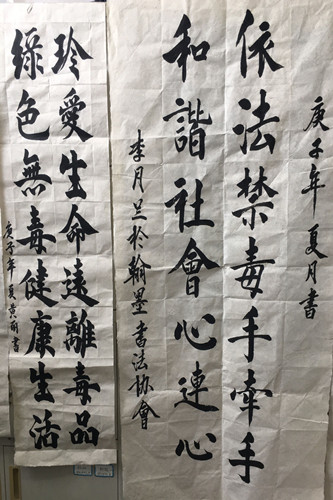 庚子年夏月書
依法禁毒手牽手
和諧社會心連心
李月兰於翰墨書法協會
珍愛生命遠離毒品
綠色無毒健康生活
庚子年夏書